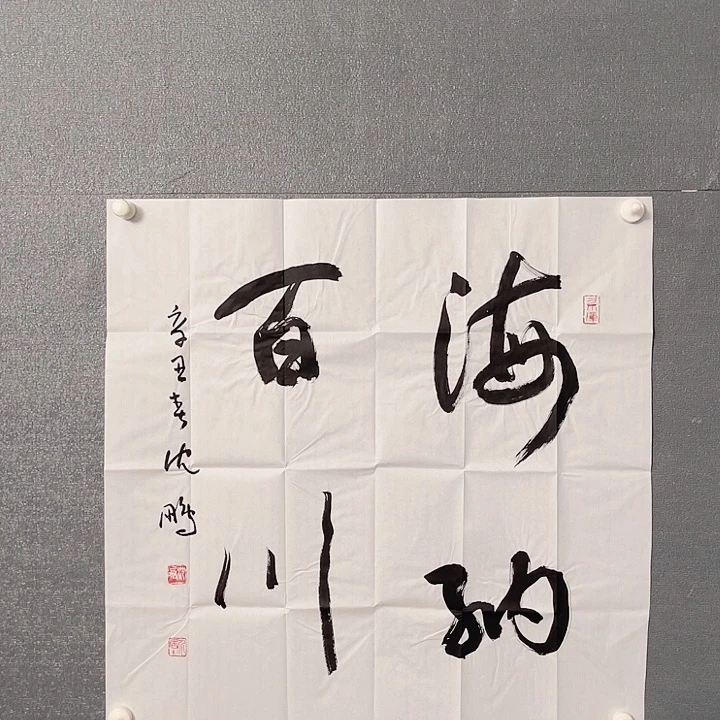 海纳
百川
辛丑春沈鹏